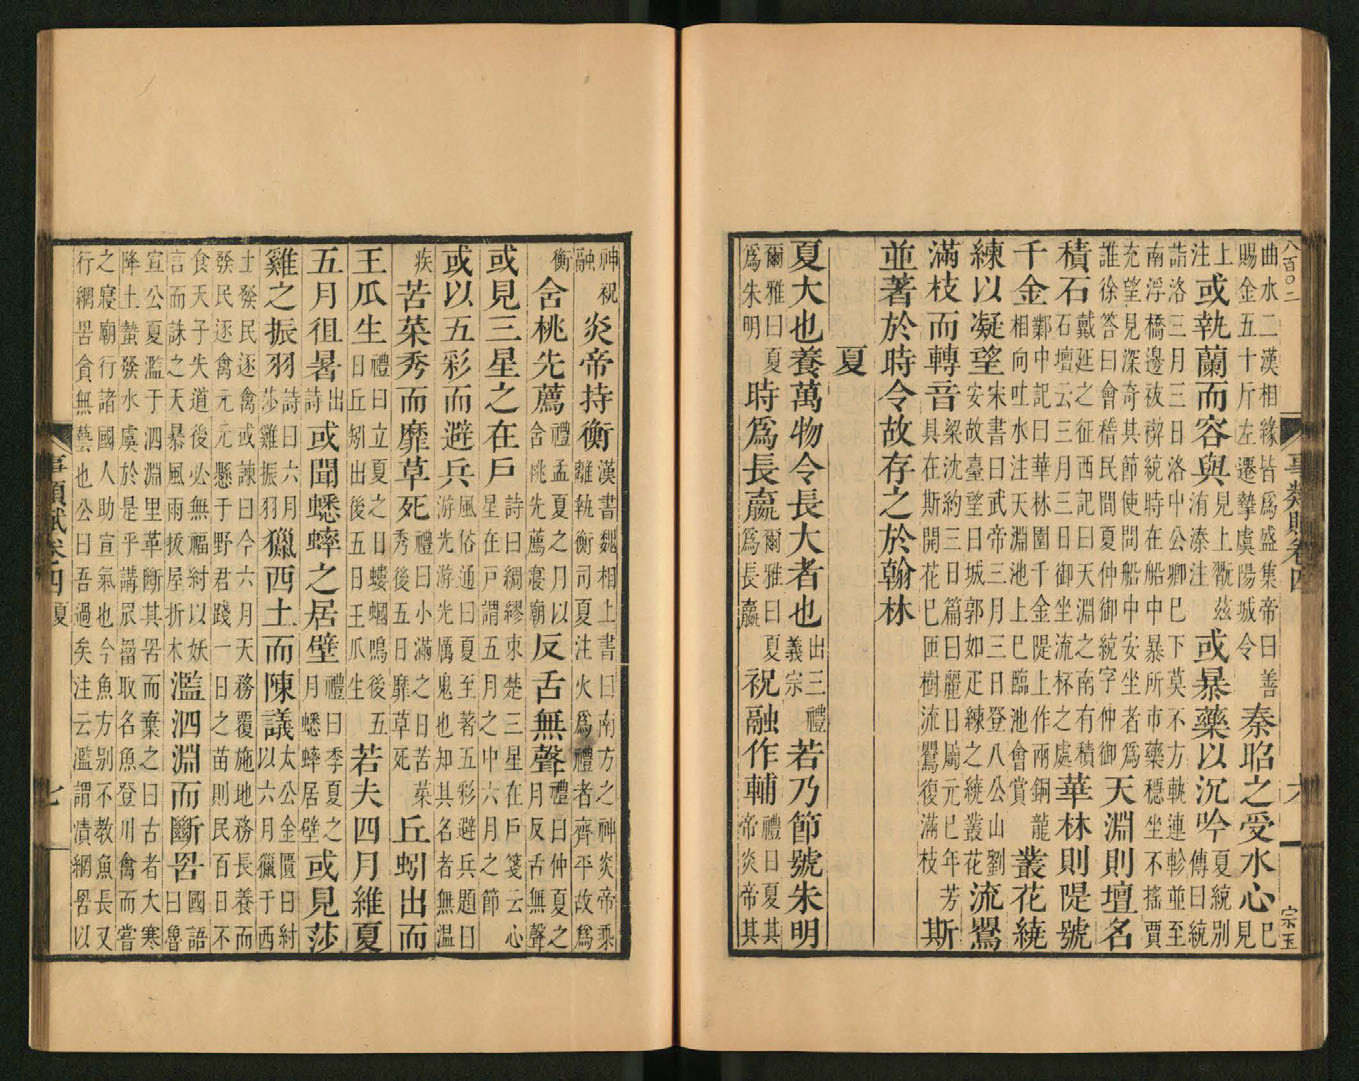 八百○二
事類賦卷四
六
宗玉
曲水二漢相緣皆爲盛集帝曰善賜金五十斤左遷摯虞陽城令秦昭之受水心已見
上注或執蘭而容與或暴藥以沉吟夏統別傳曰統
詣洛三月三日洛中公卿巳下莫不方軌連軫並至南浮橋邊祓禊統時在船中暴所市藥穩坐不搖賈
充望見深奇其節使問船中安坐者爲誰徐答曰會稽民間夏仲御統字仲御天淵則壇名
積石戴延之西征記曰天淵之南有積石壇云三月三日御坐流杯之處華林則隄號
千金鄴中記曰華林園千金隄上作兩銅龍相向吐水注天淵池上巳臨池會賞叢花繞
練以凝望宋書曰武帝三月三日登八公山劉安故臺望曰城郭如疋練之繞叢花流鸎
滿枝而轉音梁沈約三日篇曰麗日屬元巳年芳具在斯開花巳匝樹流鸎復滿枝斯
並著於時令故存之於翰林
夏
夏大也養萬物令長大者也出三禮義宗若乃節號朱明
爾雅曰夏爲朱明時爲長嬴爾雅曰夏爲長嬴祝融作輔禮曰夏其帝炎帝其
神祝融炎帝持衡漢書魏相上書曰南方之神炎帝乘離執衡司夏注火爲禮禮者齊平故爲
衡含桃先薦禮孟夏之月以含桃先薦寢廟反舌無聲禮曰仲夏之月反舌無聲
或見三星之在戶詩曰綢繆束楚三星在戶箋云心星在戶謂五月之中六月之節
或以五彩而避兵風俗通曰夏至著五彩避兵題曰游光游光厲鬼也知其名者無溫
疾苦菜秀而靡草死禮曰小滿之日苦菜秀後五日靡草死丘蚓出而
王瓜生禮曰立夏之日螻蟈鳴後五日丘蚓出後五日王瓜生若夫四月維夏
五月徂暑出詩或聞蟋蟀之居壁禮曰季夏之月蟋蟀居壁或見莎
雞之振羽詩曰六月莎雞振羽獵西土而陳議太公金匱曰紂以六月獵于西
土發民逐禽或諫曰今六月天務覆施地務長養而發民逐禽元元懸于野君踐一日之苗則民百日不
食天子失道後必無福紂以妖言而誅之天暴風雨拔屋折木濫泗淵而斷罟國語曰魯
宣公夏濫于泗淵里革斷其罟而棄之曰古者大寒降土蟄發水虞於是乎講罛罶取名魚登川禽而嘗
之寢廟行諸國人助宣氣也今魚方別不教魚長又行網罟貪無藝也公曰吾過矣注云濫謂漬網罟以
事類賦卷四
夏
七